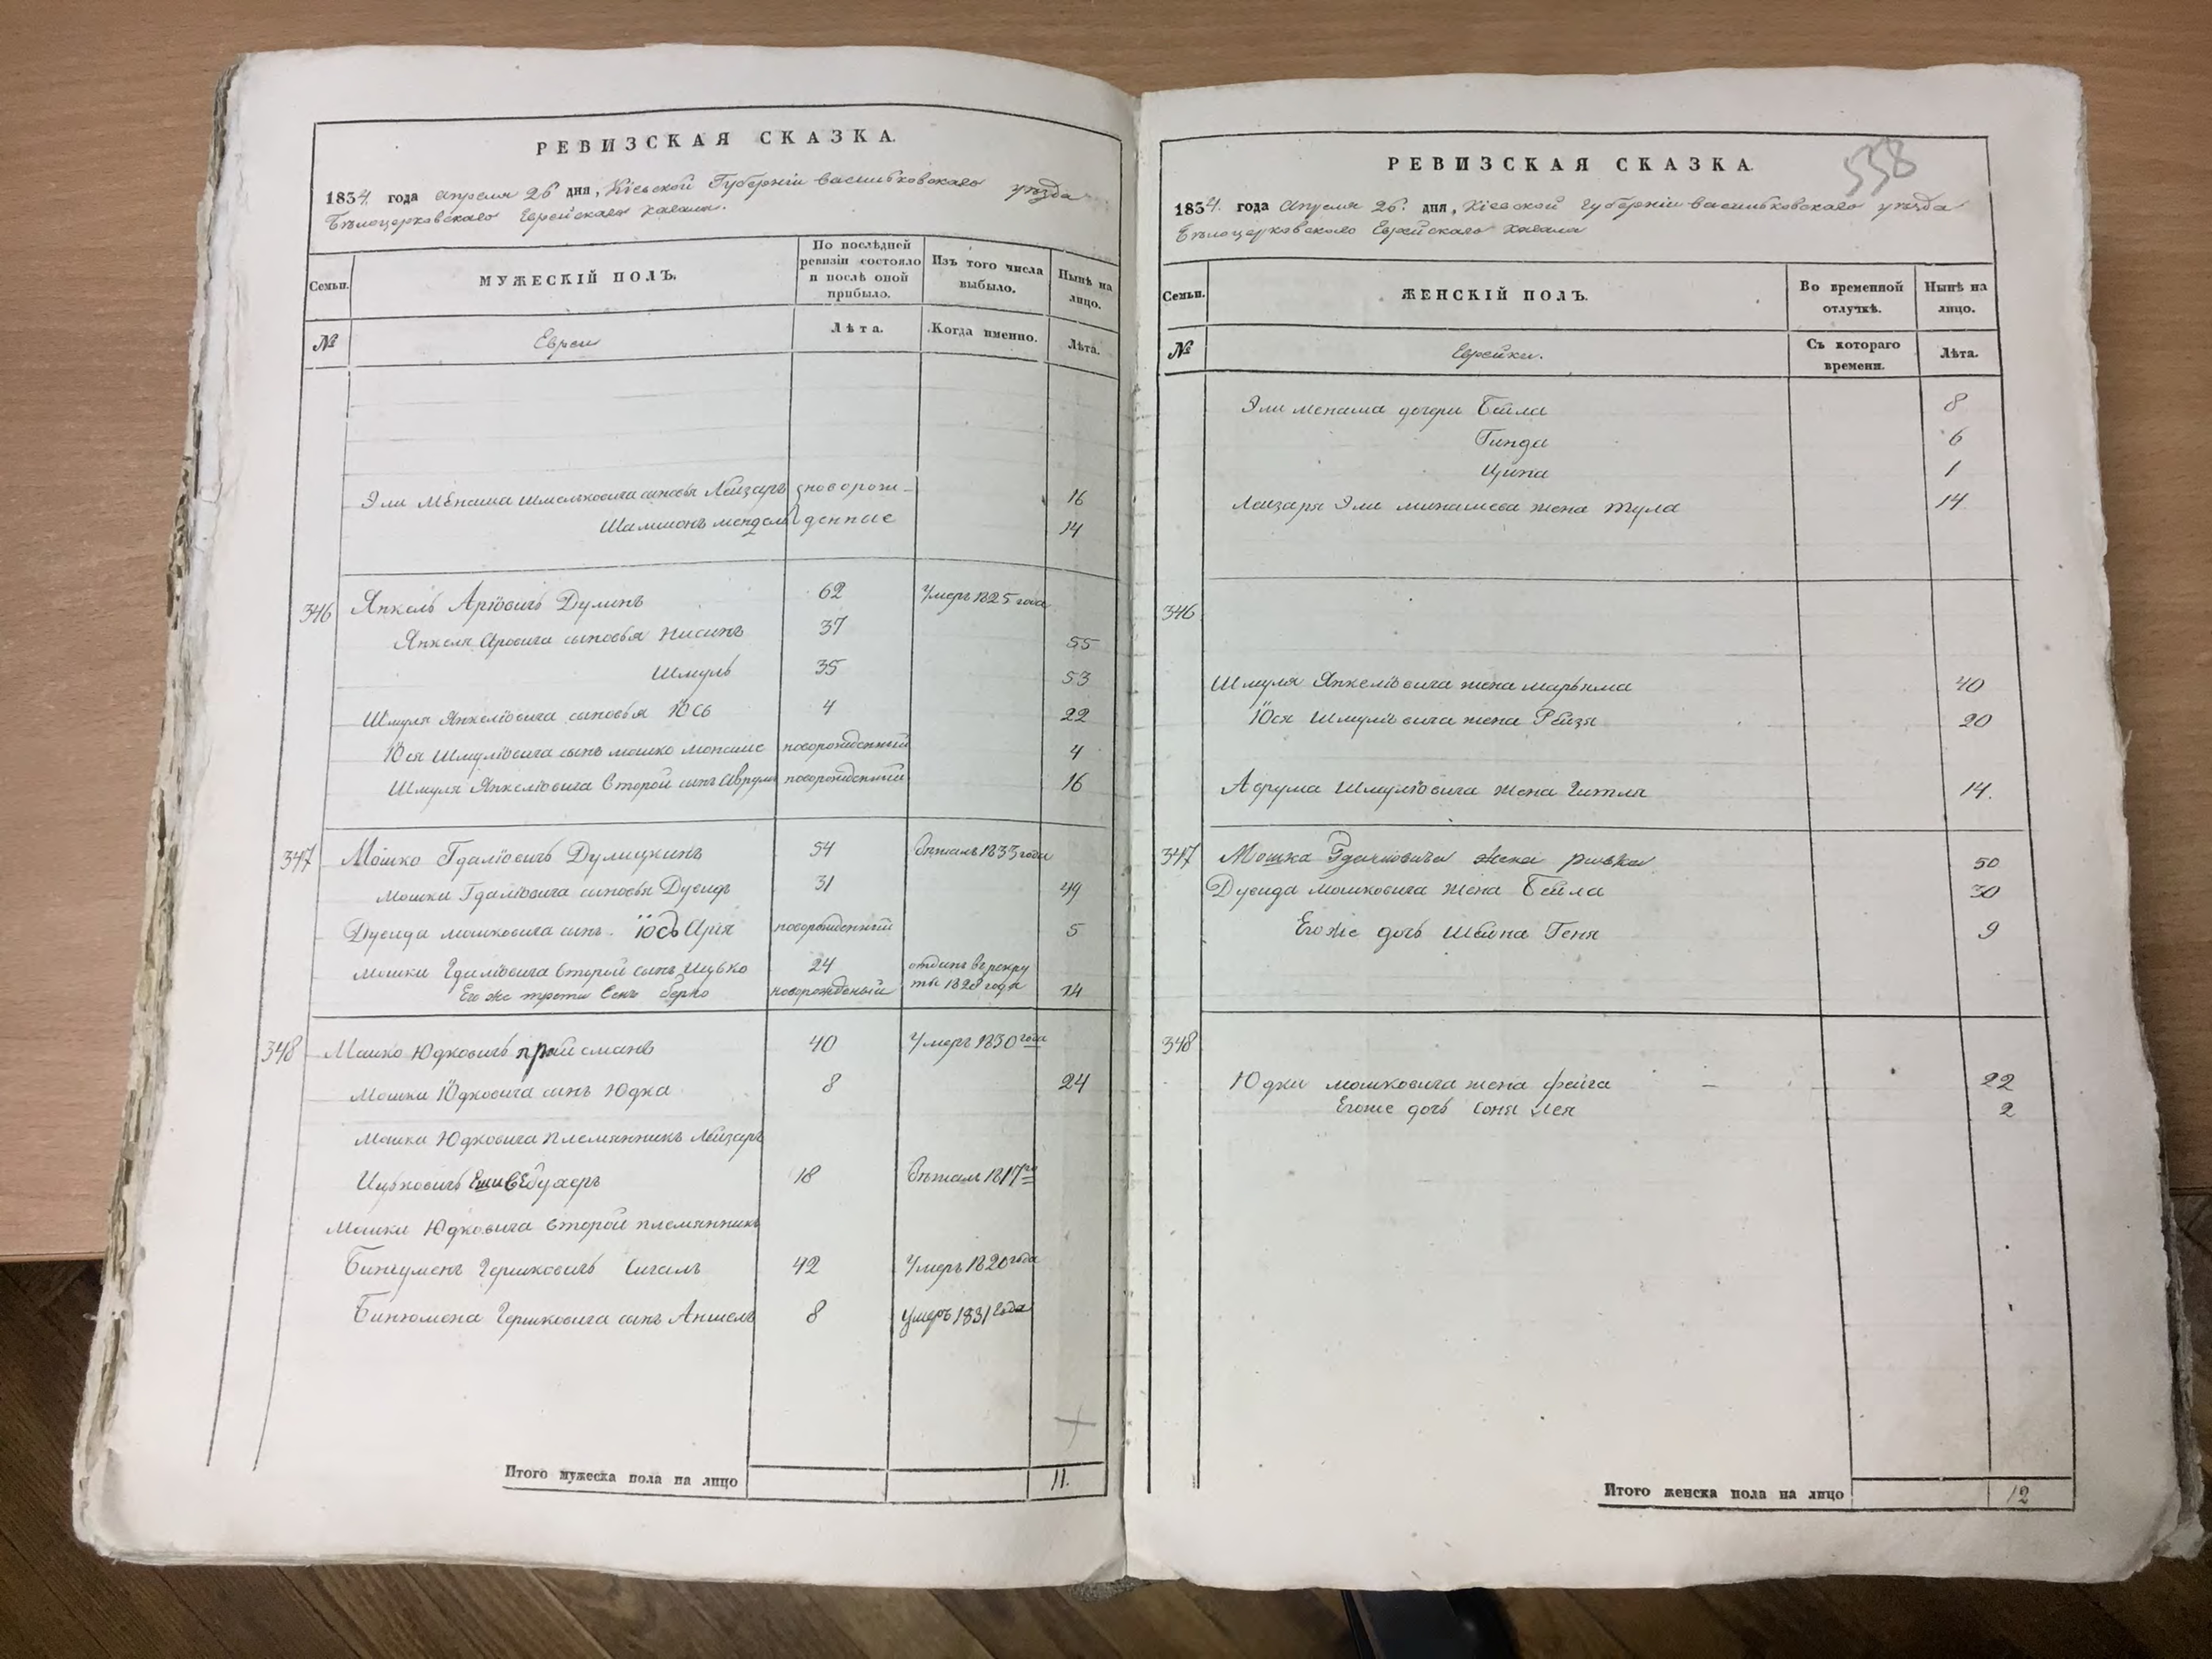 РЕВИЗСКАЯ СКАЗКА.
1834. года Апреля 26 дня, Кіевской Губерніи васильковскаго уѣзда
Бѣлоцерковскаго Еврейскаго кагала.
Семьи.
МУЖЕСКІЙ ПОЛЪ.
По послѣдней ревизіи состояло и послѣ оной прибыло.
Изъ того числа выбыло.
Нынѣ на лицо.
№
Евреи
Лѣта.
Когда именно.
Лѣта.
Эли Менаша Шмельковича сыновья Лейзаръ новорож- 16
Шамшонъ мендель денные 14
346 Янкель Аріовичъ Дулинъ 62 Умеръ 1825 года
Янкеля Аровича сыновья Нисинъ 37 55
Шмуль 35 53
Шмуля Янкеліовича сыновья Юсь 4 22
Юся Шмуліовича сынъ мошко монашс новорожденный 4
Шмуля Янкеліовича второй сынъ Аврумъ новорожденный 16
347 Мошко Гдаліовичъ Дулицкинъ 54 Бѣжалъ 1833 года
Мошки Гдаліовича сыновья Дувидъ 31 49
Дувида мошковича сынъ Юсь Арія новорожденный 5
Мошки Гдаліовича второй сынъ Ицько 24 отданъ в рекру
Его же трети Сенъ берко новорожденый ты 1828 года 14
348 Мошко Юдковичъ прайсманъ 40 Умеръ 1830 года
Мошки Юдковича сынъ Юдка 8 24
Мошки Юдковича племянникъ Лейзаръ
Ицьковичъ 18 Бѣжалъ 1817 го
Мошки Юдковича второй племянникъ
Бинюменъ Гершковичъ Сигалъ 42 Умеръ 1820 года
Бинюмена Гершковича сынъ Аншель 8 умеръ 1831 года
Итого мужеска пола на лицо 11.
558
РЕВИЗСКАЯ СКАЗКА.
1834. года Апреля 26. дня, Кіевской Губерніи васильковскаго уѣзда
Бѣлоцерковскаго Еврейскаго кагала
Семьи.
ЖЕНСКІЙ ПОЛЪ.
Во временной отлучкѣ.
Нынѣ на лицо.
№
Еврейки.
Съ котораго времени.
Лѣта.
Эли менаша дочери Бейла 8
Гинда 6
Ципа 1
Лейзаря Эли минашева жена Тула 14
346
Шмуля Янкеліовича жена марьяма 40
Юся Шмуліовича жена Рейзя 20
Аврума Шмуліовича жена Гитля 14.
347 Мошка Гдаліовича жена ривка 50
Дувида мошковича жена Бейла 30
Его же дочь Шейна Геня 9
348
Юдки мошковича жена фейга 22
Его же дочь Соня лея 2
Итого женска пола на лицо 12